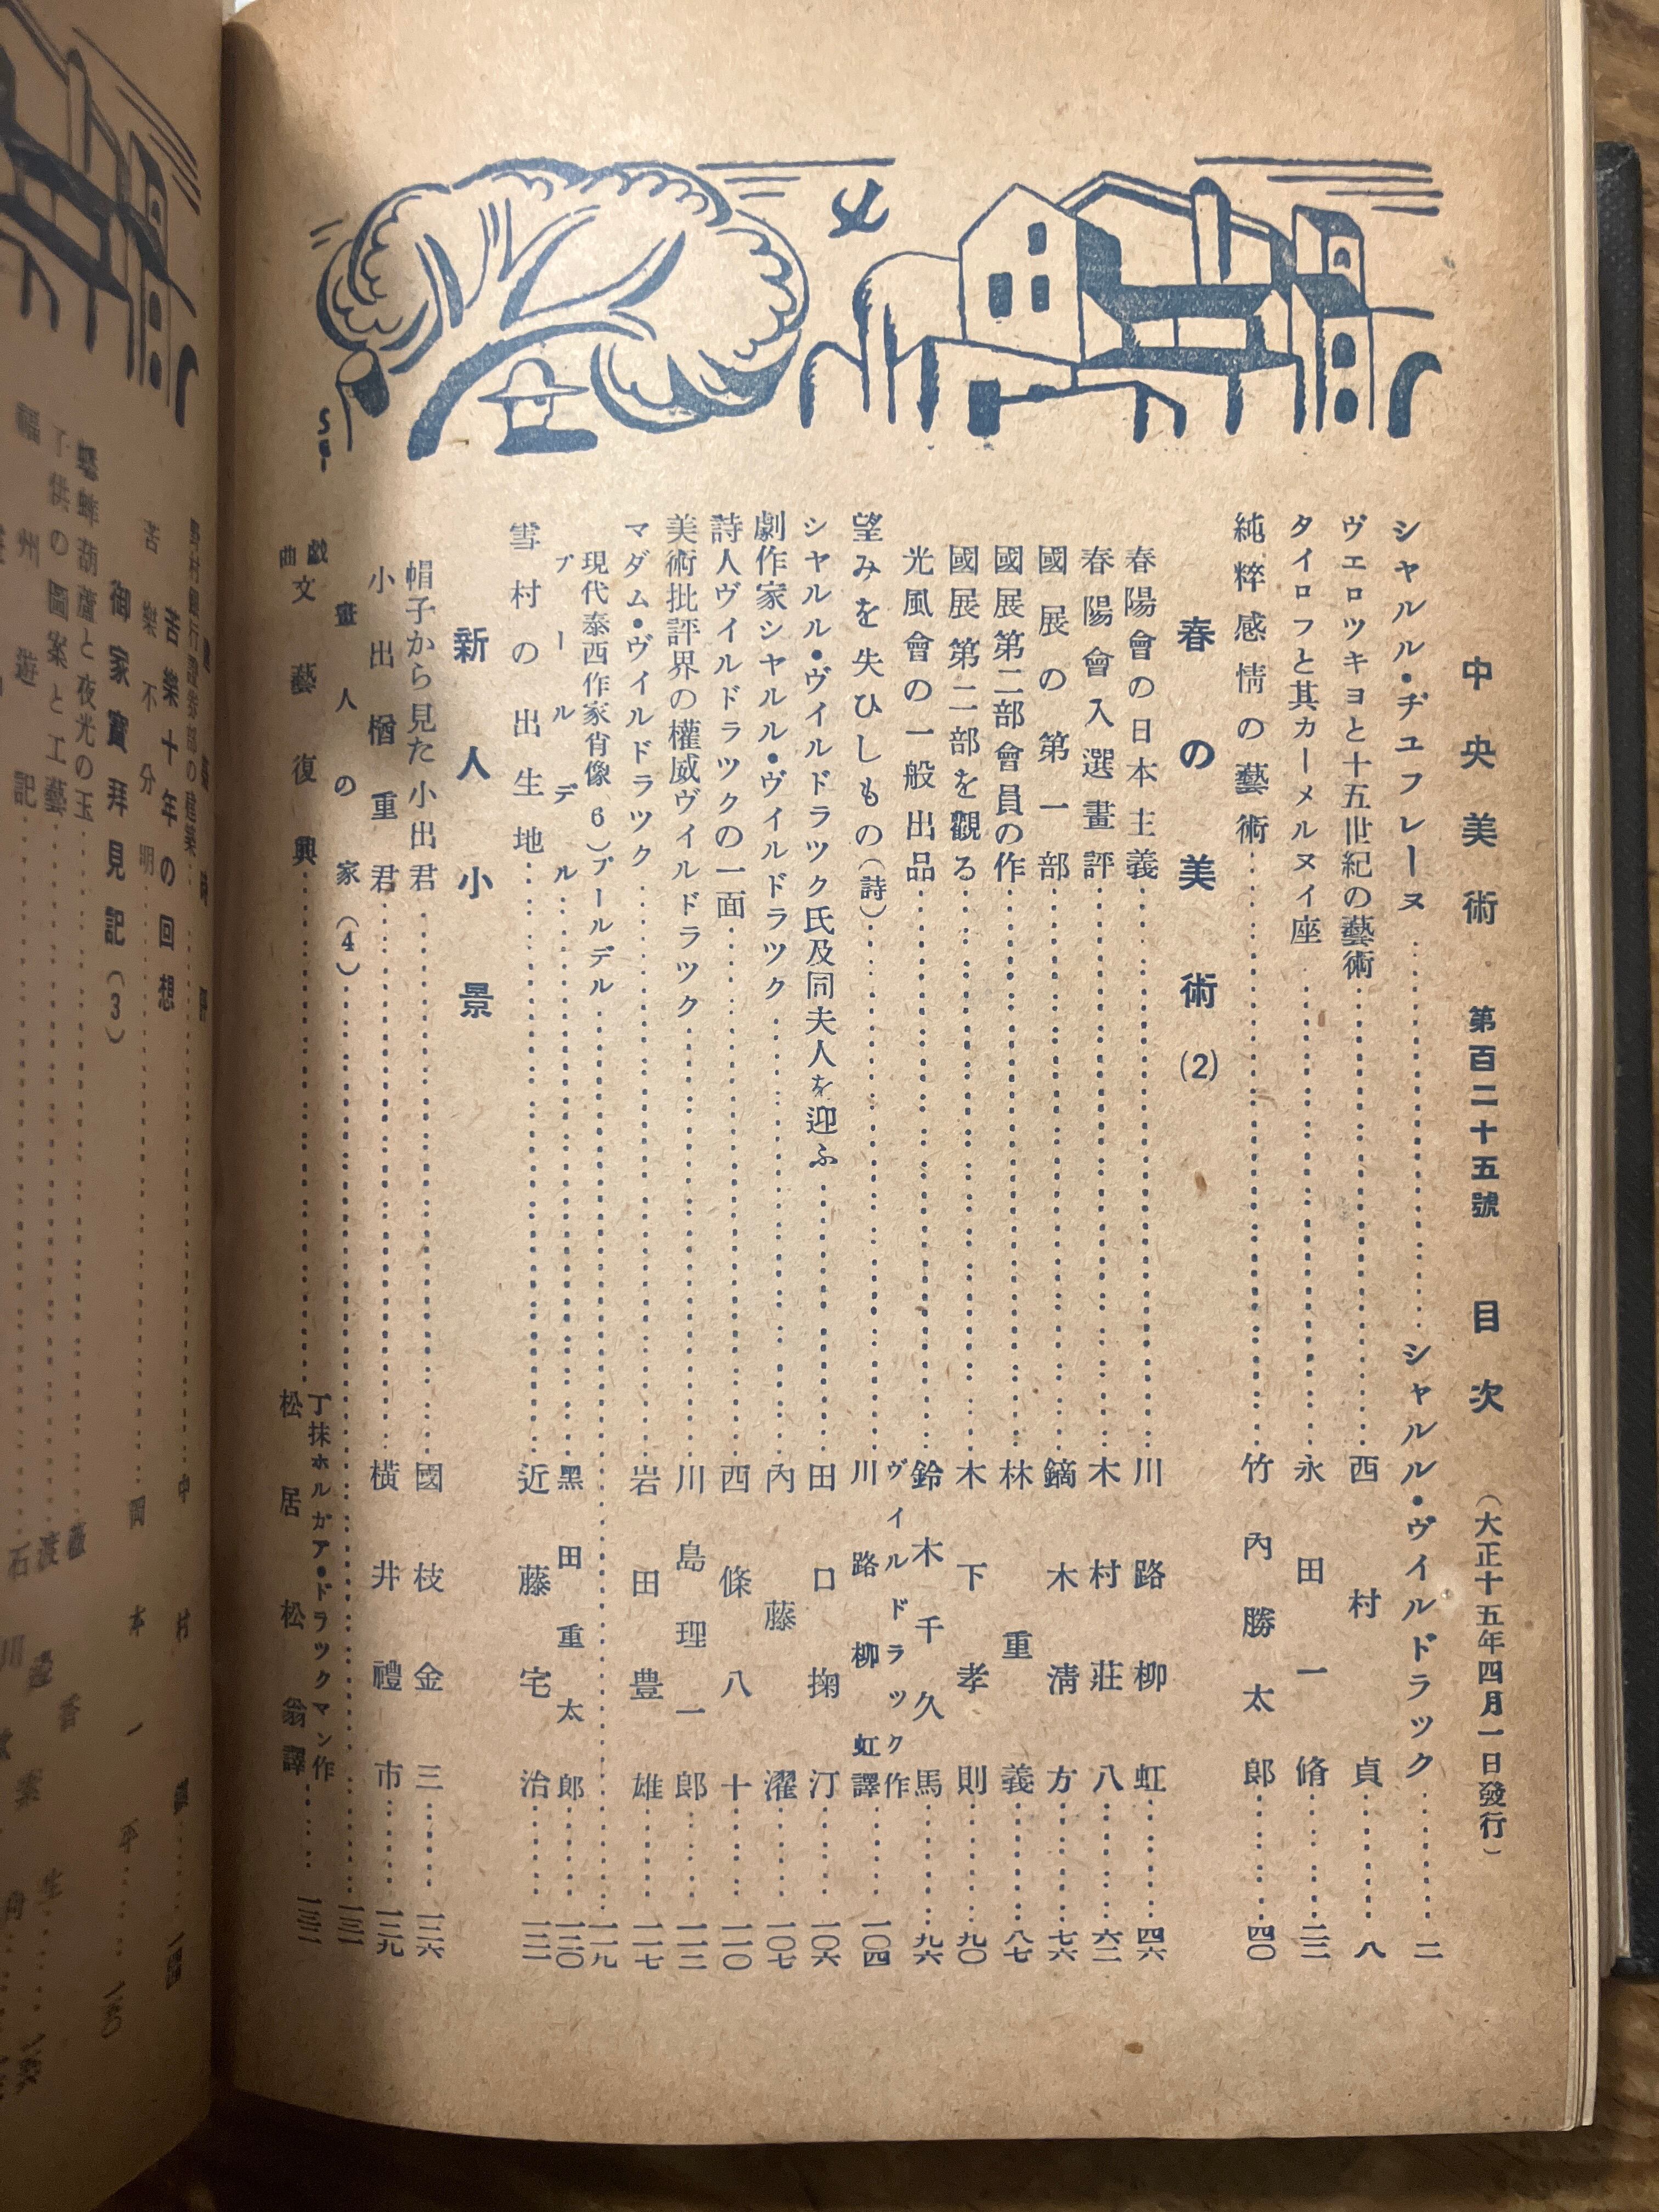 中央美術 第百二十五號 目次 (大正十五年四月一日發行)
シャルル・ヂユフレーヌ シャルル・ヴイルドラツク 二
ヴエロツキヨと十五世紀の藝術 西村貞 八
タイロフと其カーメルヌイ座 永田一脩 三二
純粹感情の藝術 竹內勝太郎 四〇
春の美術 (2)
春陽會の日本主義 川路柳虹 四六
春陽會入選畫評 木村莊八 六二
國展の第一部 鏑木淸方 七六
國展第二部會員の作 林重義 八七
國展第二部を觀る 木下孝則 九〇
光風會の一般出品 鈴木千久馬 九六
望みを失ひしもの(詩) ヴイルドラツク作 川路柳虹譯 一〇四
シヤルル・ヴイルドラツク氏及同夫人を迎ふ 田口掬汀 一〇六
劇作家シヤルル・ヴイルドラツク 內藤濯 一〇七
詩人ヴイルドラツクの一面 西條八十 一一〇
美術批評界の權威ヴイルドラツク 川島理一郎 一一三
マダム・ヴイルドラツク 岩田豊雄 一一七
現代泰西作家肖像(6)ブールデル 一一九
ブールデル 黑田重太郎 一二〇
雪村の出生地 近藤宅治 一二一
新人小景
帽子から見た小出君 國枝金三 一二六
小出楢重君 橫井禮市 一二九
畫人の家(4) 一三一
戱曲 文藝復興 丁抹ホルガア・ドラツクマン作 松居松翁譯 一三二
野村銀行證券部の建築
苦樂十年の回想
苦樂不分明
御家寶拜見記(3)
蟋蟀葫蘆と夜光の玉
子供の圖案と工藝
福州遊記